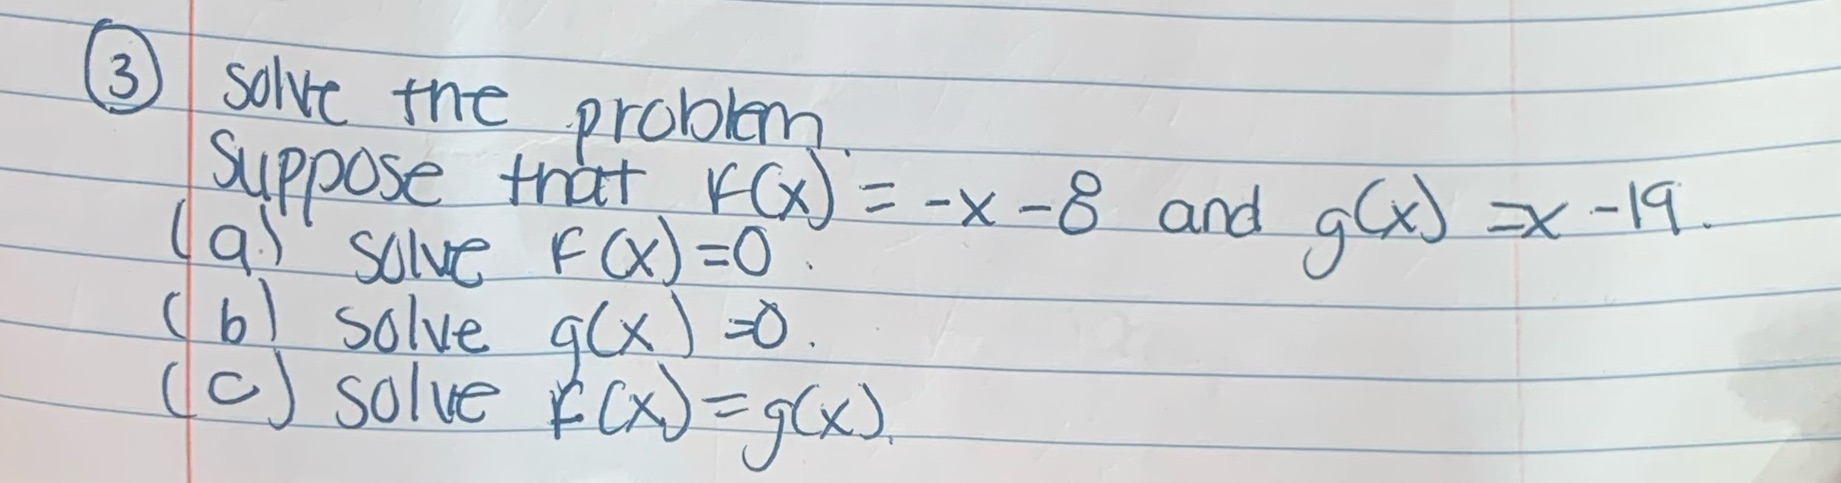 ③ solve the problem.
Suppose that F(x) = -x - 8 and g(x) = x - 19.
(a) solve F(x) = 0.
(b) solve g(x) = 0.
(c) solve F(x) = g(x).